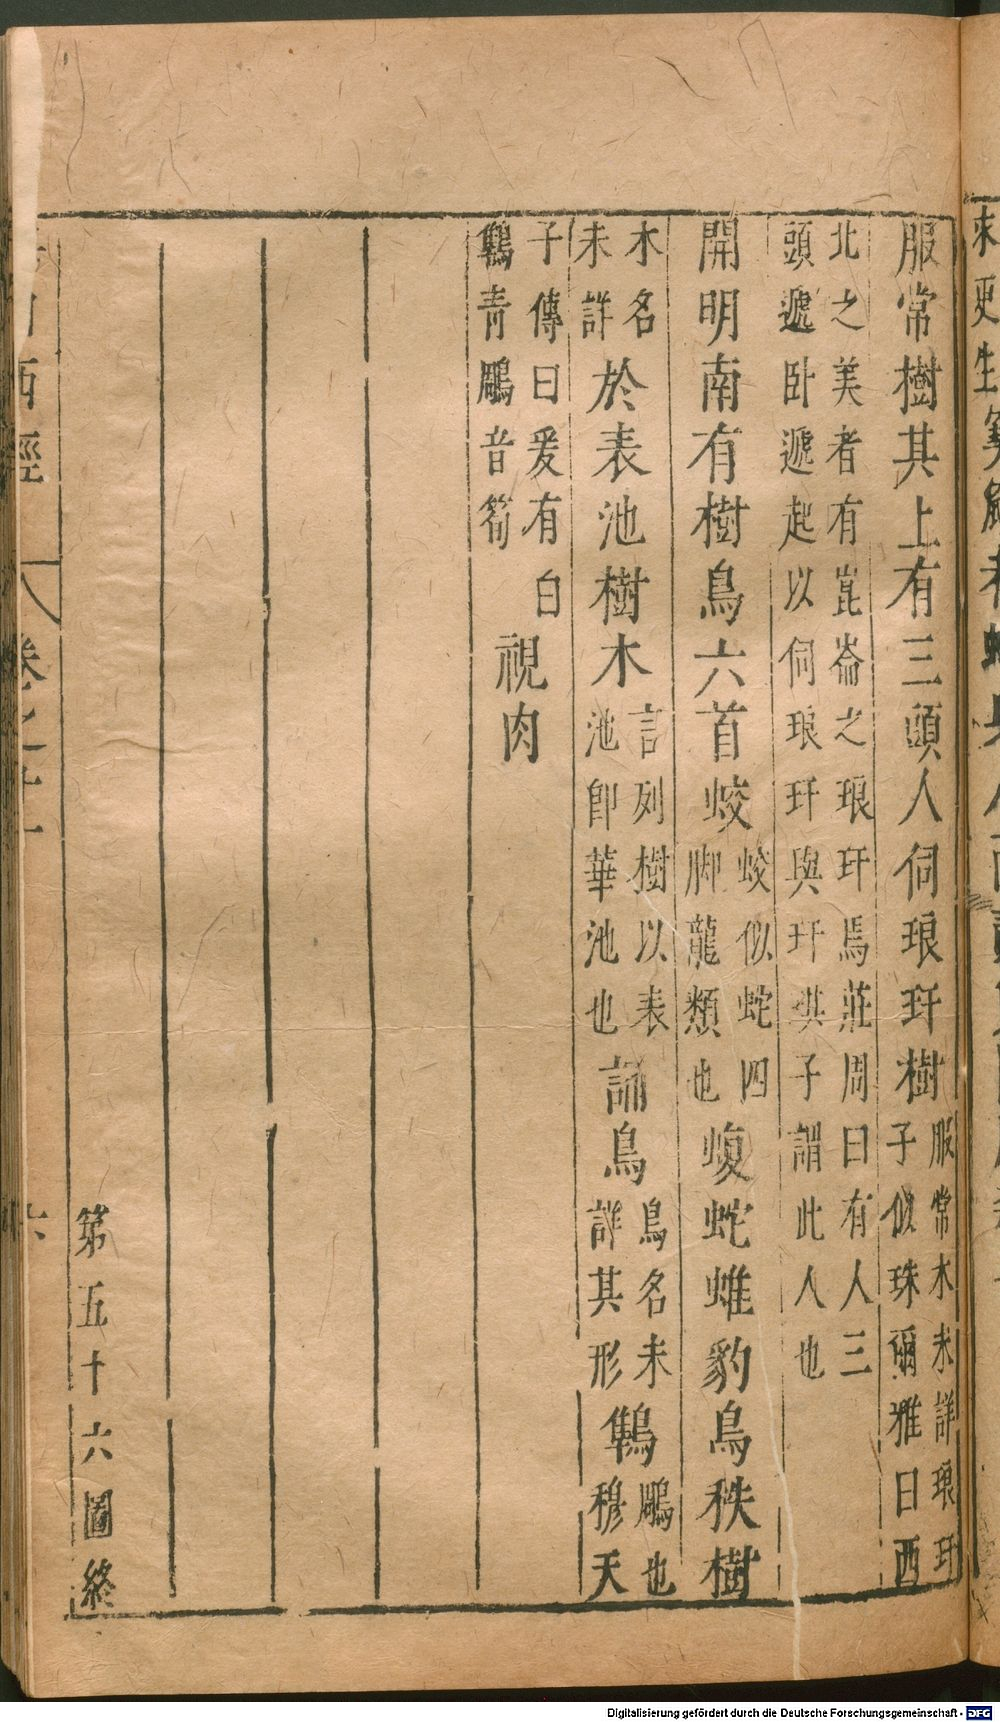 服常樹其上有三頭人伺琅玕樹服常木未詳琅玕子似珠爾雅曰西
北之美者有崑崙之琅玕焉莊周曰有人三頭遞卧遞起以伺琅玕與玕琪子謂此人也
開明南有樹鳥六首蛟蛟似蛇四脚龍類也蝮蛇蜼豹鳥秩樹
木名未詳於表池樹木言列樹以表池即華池也誦鳥鳥名未詳其形鶽鵰也穆天
子傳曰爰有白鶽青鵰音筍視肉
第五十六圖終
西經
卷之十一
六
Digitalisierung gefördert durch die Deutsche Forschungsgemeinschaft - DFG